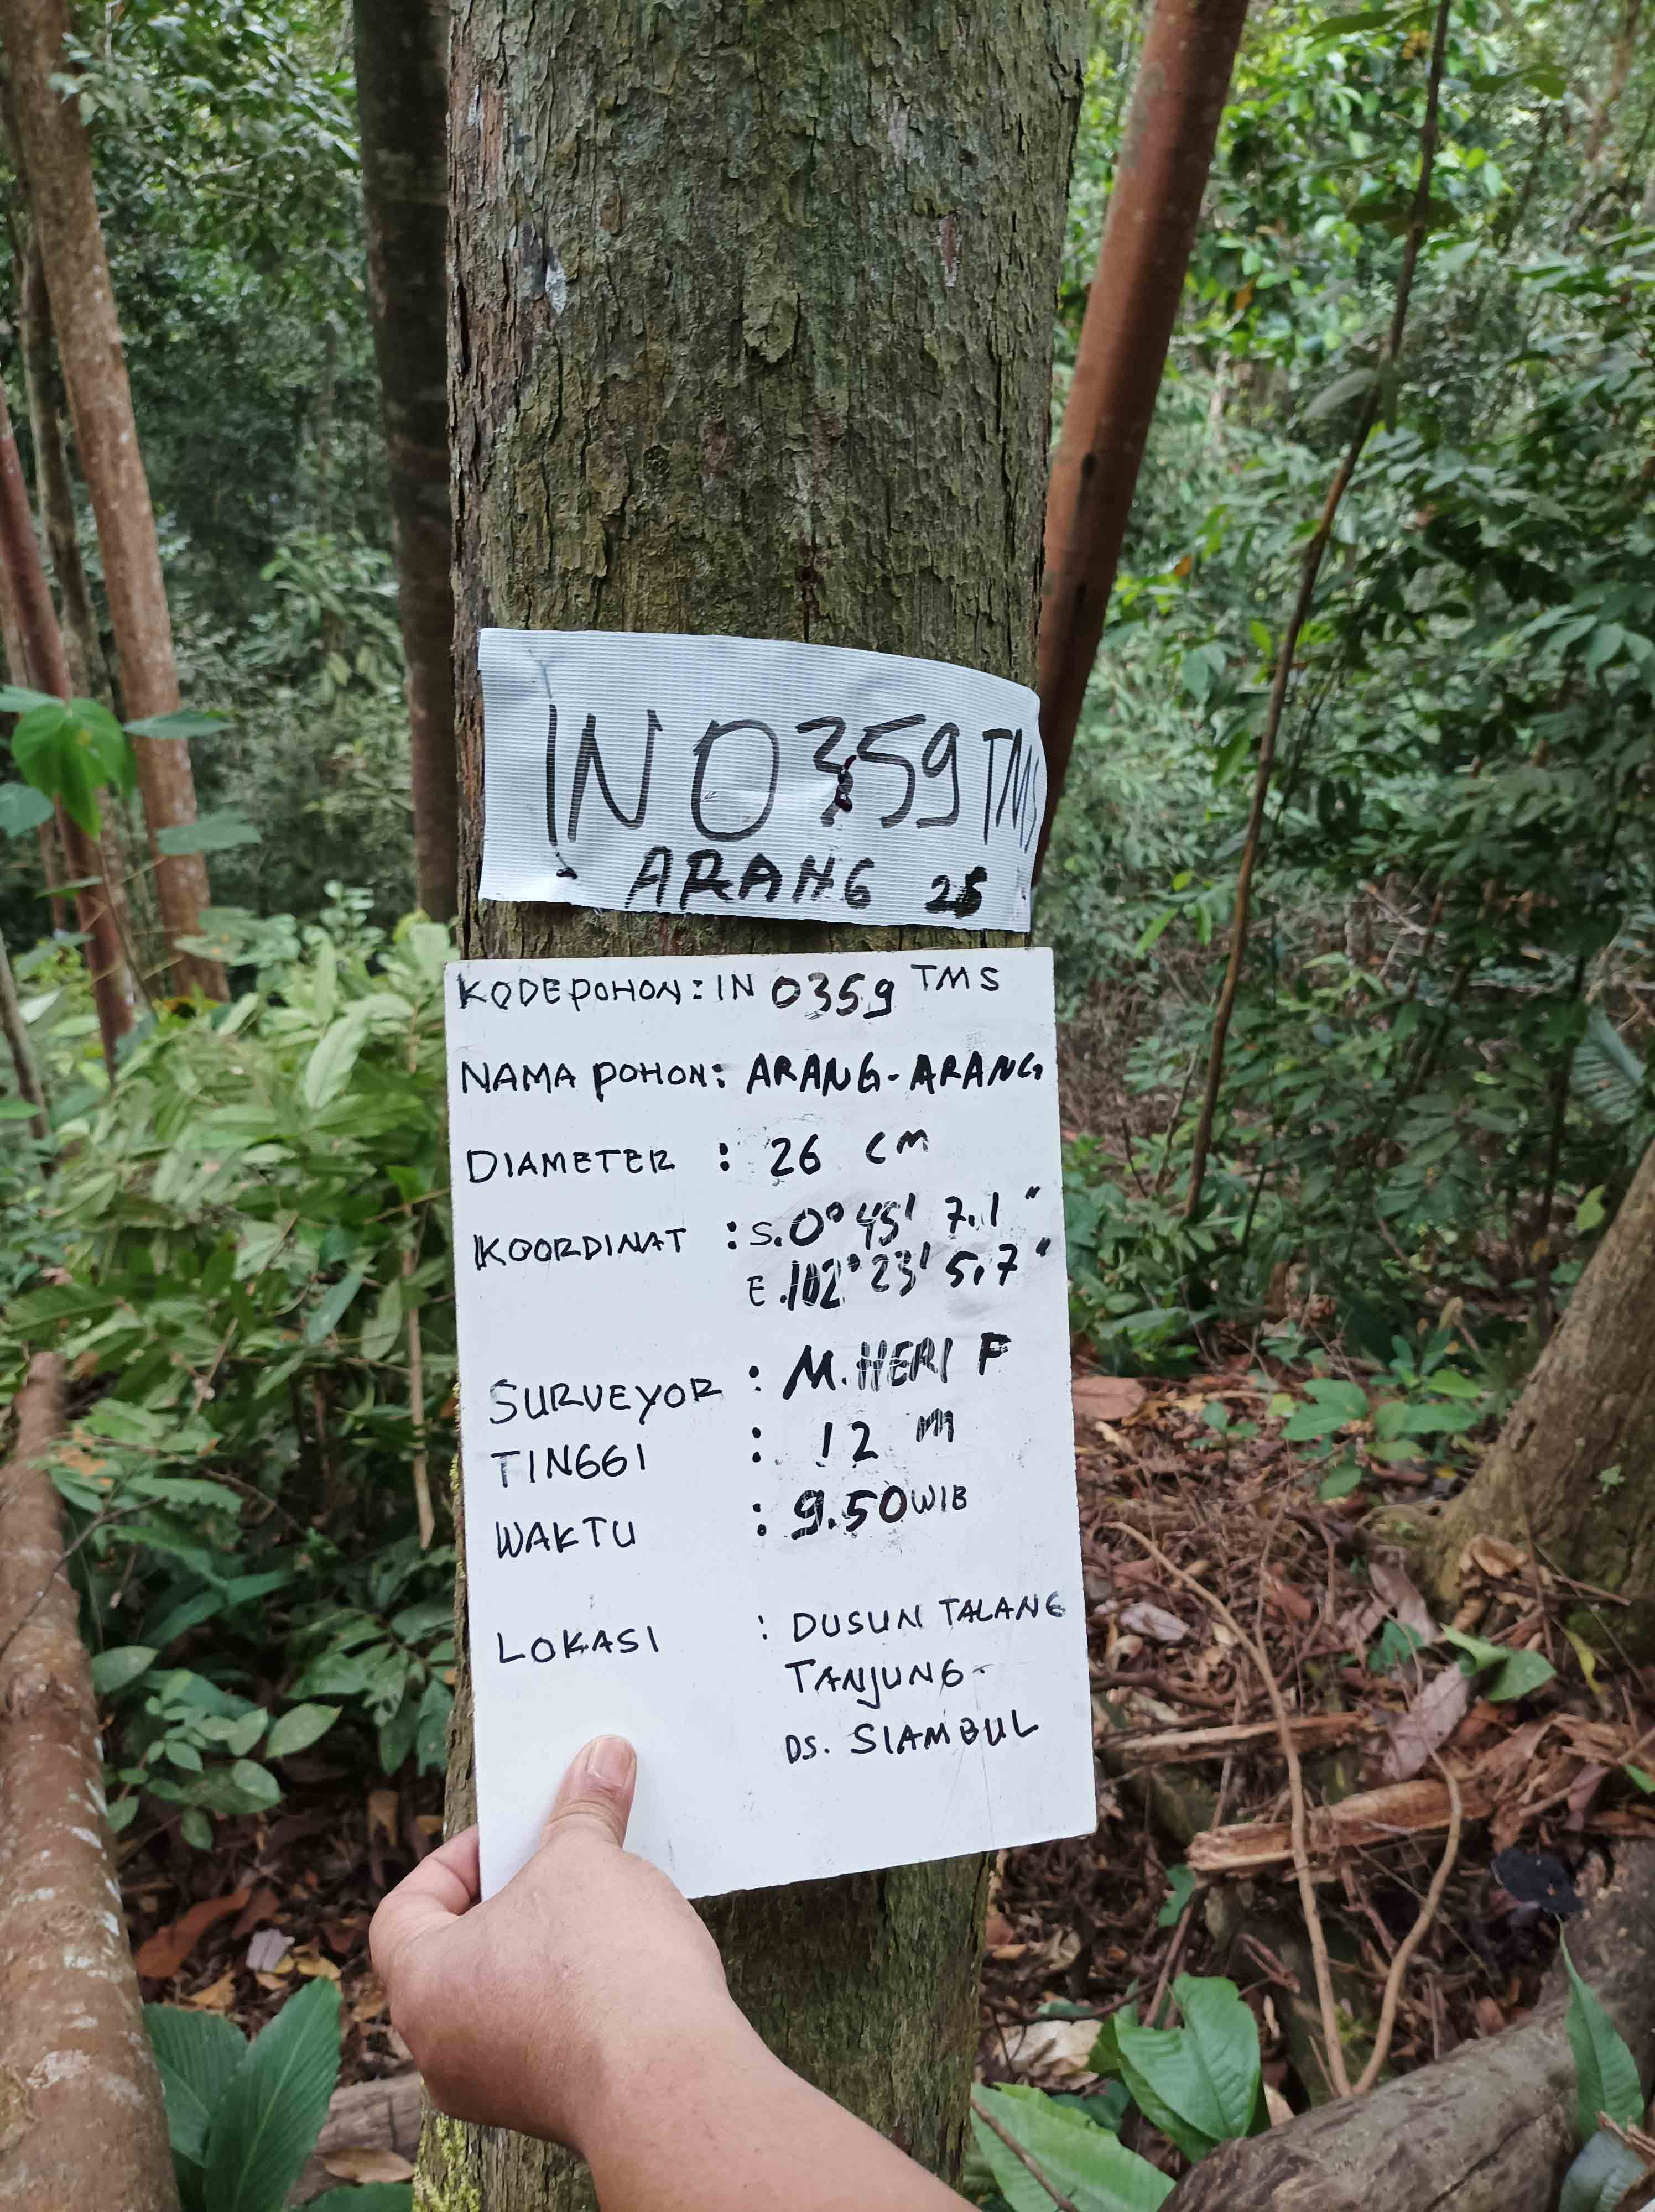 IN 0359 TMS
ARANG 26
KODE POHON : IN 0359 TMS
NAMA POHON : ARANG-ARANG
DIAMETER : 26 CM
KOORDINAT : S.0° 45' 7.1"
E.102° 23' 5,7"
SURVEYOR : M.HERI F
TINGGI : 12 M
WAKTU : 9.50 WIB
LOKASI : DUSUN TALANG
TANJUNG-
DS. SIAMBUL